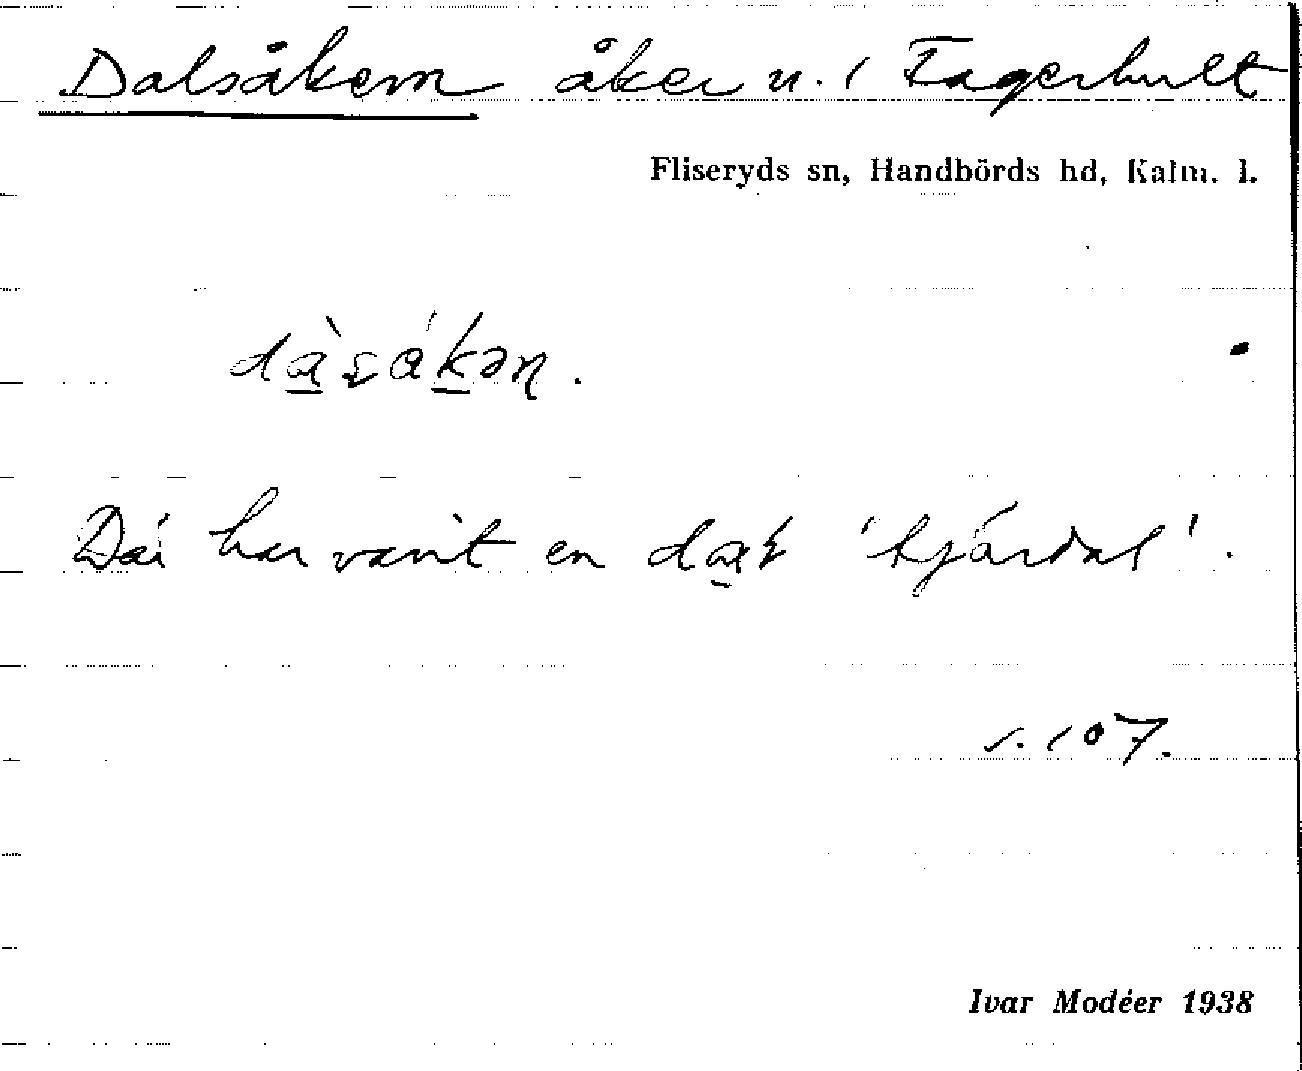 Dalsåkern åker n. i Fagerhult
Fliseryds sn, Handbörds hd, Kalm. l.
Där har varit en 'tjärdal'.
s. 107.
Ivar Modéer 1938